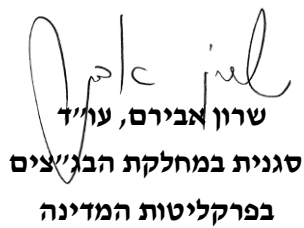 שרון אבירם, עו״ד
סגנית במחלקת הבג״צים
בפרקליטות המדינה